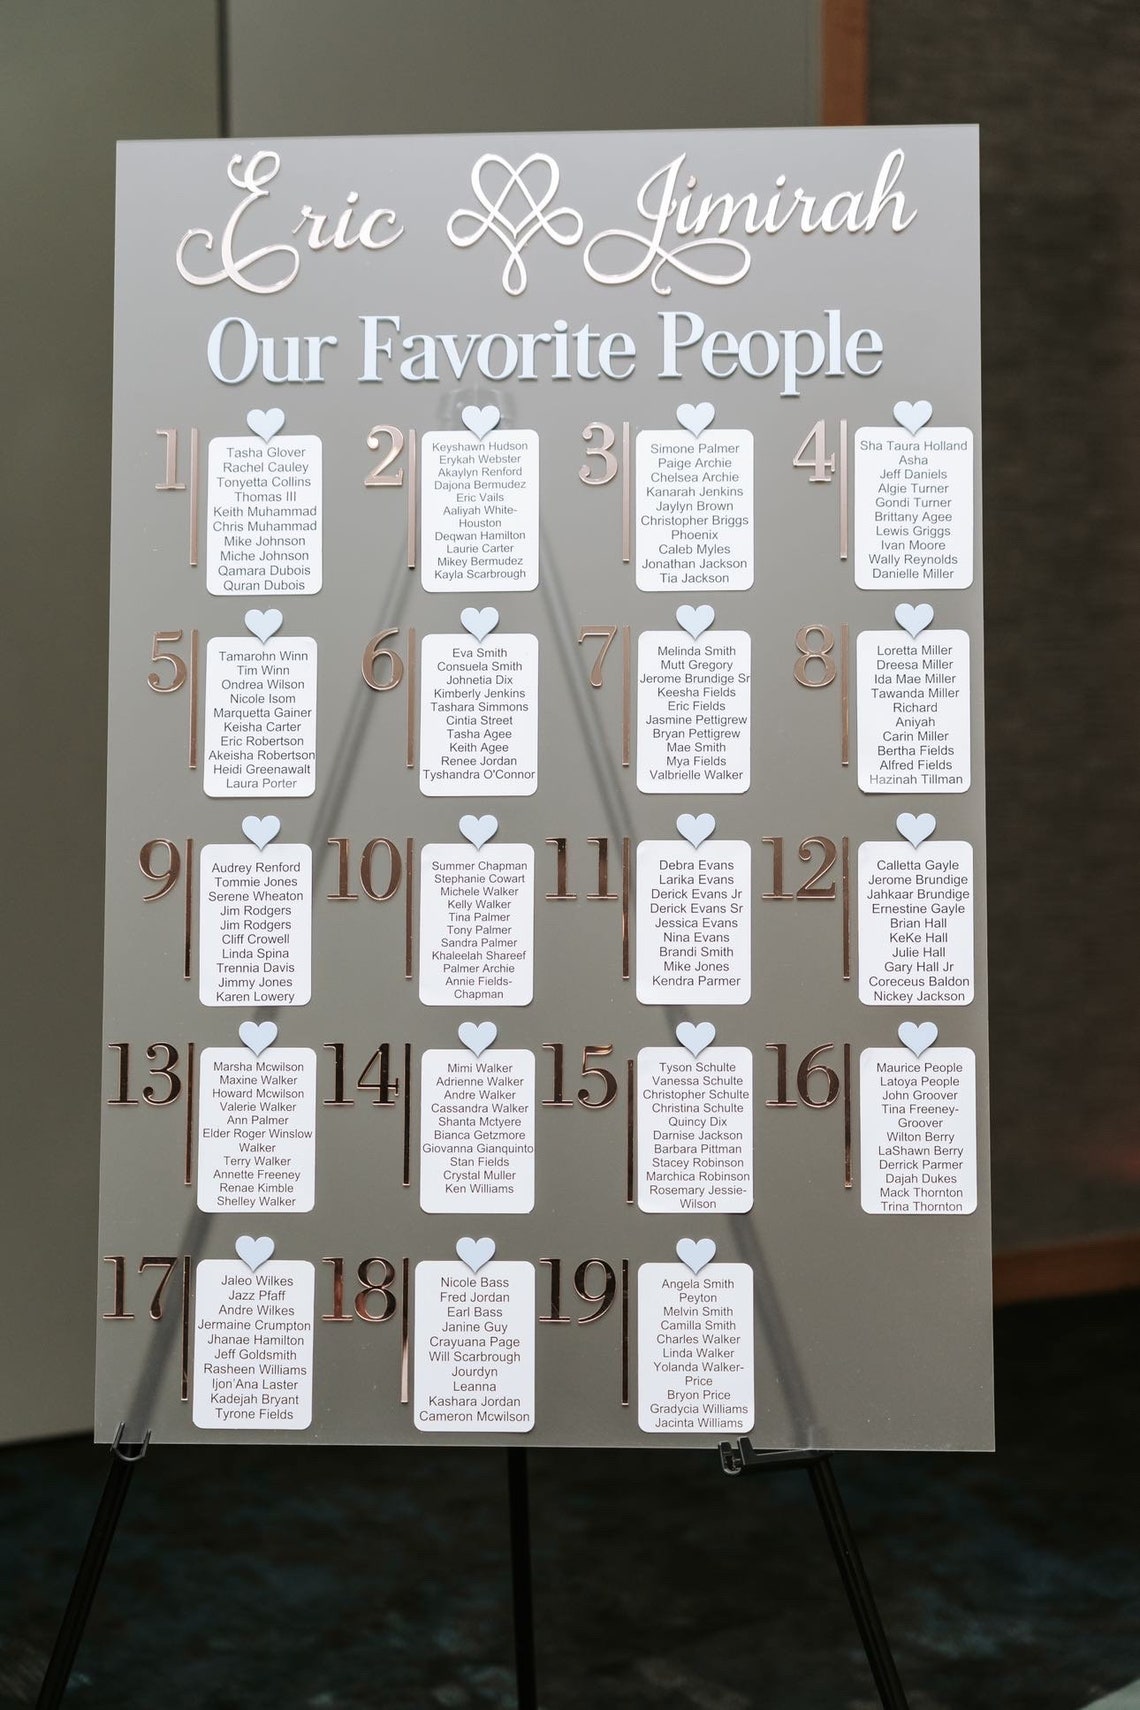 Eric Jimirah
Our Favorite People
1
Tasha Glover
Rachel Cauley
Tonyetta Collins
Thomas III
Keith Muhammad
Chris Muhammad
Mike Johnson
Miche Johnson
Qamara Dubois
Quran Dubois
2
Keyshawn Hudson
Erykah Webster
Akaylyn Renford
Dajona Bermudez
Eric Vails
Aaliyah White-
Houston
Deqwan Hamilton
Laurie Carter
Mikey Bermudez
Kayla Scarbrough
3
Simone Palmer
Paige Archie
Chelsea Archie
Kanarah Jenkins
Jaylyn Brown
Christopher Briggs
Phoenix
Caleb Myles
Jonathan Jackson
Tia Jackson
4
Sha Taura Holland
Asha
Jeff Daniels
Algie Turner
Gondi Turner
Brittany Agee
Lewis Griggs
Ivan Moore
Wally Reynolds
Danielle Miller
5
Tamarohn Winn
Tim Winn
Ondrea Wilson
Nicole Isom
Marquetta Gainer
Keisha Carter
Eric Robertson
Akeisha Robertson
Heidi Greenawalt
Laura Porter
6
Eva Smith
Consuela Smith
Johnetia Dix
Kimberly Jenkins
Tashara Simmons
Cintia Street
Tasha Agee
Keith Agee
Renee Jordan
Tyshandra O'Connor
7
Melinda Smith
Mutt Gregory
Jerome Brundige Sr
Keesha Fields
Eric Fields
Jasmine Pettigrew
Bryan Pettigrew
Mae Smith
Mya Fields
Valbrielle Walker
8
Loretta Miller
Dreesa Miller
Ida Mae Miller
Tawanda Miller
Richard
Aniyah
Carin Miller
Bertha Fields
Alfred Fields
Hazinah Tillman
9
Audrey Renford
Tommie Jones
Serene Wheaton
Jim Rodgers
Jim Rodgers
Cliff Crowell
Linda Spina
Trennia Davis
Jimmy Jones
Karen Lowery
10
Summer Chapman
Stephanie Cowart
Michele Walker
Kelly Walker
Tina Palmer
Tony Palmer
Sandra Palmer
Khaleelah Shareef
Palmer Archie
Annie Fields-
Chapman
11
Debra Evans
Larika Evans
Derick Evans Jr
Derick Evans Sr
Jessica Evans
Nina Evans
Brandi Smith
Mike Jones
Kendra Parmer
12
Calletta Gayle
Jerome Brundige
Jahkaar Brundige
Ernestine Gayle
Brian Hall
KeKe Hall
Julie Hall
Gary Hall Jr
Coreceus Baldon
Nickey Jackson
13
Marsha Mcwilson
Maxine Walker
Howard Mcwilson
Valerie Walker
Ann Palmer
Elder Roger Winslow
Walker
Terry Walker
Annette Freeney
Renae Kimble
Shelley Walker
14
Mimi Walker
Adrienne Walker
Andre Walker
Cassandra Walker
Shanta Mctyere
Bianca Getzmore
Giovanna Gianquinto
Stan Fields
Crystal Muller
Ken Williams
15
Tyson Schulte
Vanessa Schulte
Christopher Schulte
Christina Schulte
Quincy Dix
Darnise Jackson
Barbara Pittman
Stacey Robinson
Marchica Robinson
Rosemary Jessie-
Wilson
16
Maurice People
Latoya People
John Groover
Tina Freeney-
Groover
Wilton Berry
LaShawn Berry
Derrick Parmer
Dajah Dukes
Mack Thornton
Trina Thornton
17
Jaleo Wilkes
Jazz Pfaff
Andre Wilkes
Jermaine Crumpton
Jhanae Hamilton
Jeff Goldsmith
Rasheen Williams
Ijon'Ana Laster
Kadejah Bryant
Tyrone Fields
18
Nicole Bass
Fred Jordan
Earl Bass
Janine Guy
Crayuana Page
Will Scarbrough
Jourdyn
Leanna
Kashara Jordan
Cameron Mcwilson
19
Angela Smith
Peyton
Melvin Smith
Camilla Smith
Charles Walker
Linda Walker
Yolanda Walker-
Price
Bryon Price
Gradycia Williams
Jacinta Williams